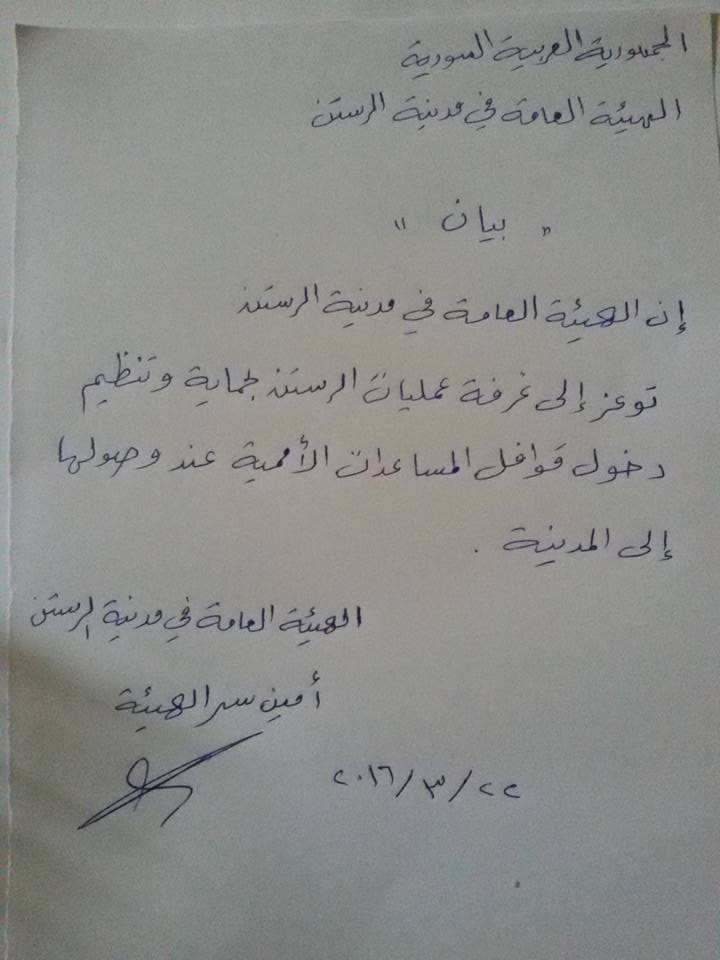 الجمهورية العربية السورية
الهيئة العامة في مدينة الرستن
" بيان "
إن الهيئة العامة في مدينة الرستن
توعز إلى غرفة عمليات الرستن لحماية وتنظيم
دخول قوافل المساعدات الأممية عند وصولها
إلى المدينة .
الهيئة العامة في مدينة الرستن
أمين سر الهيئة
٢٢/٣/٢٠١٦